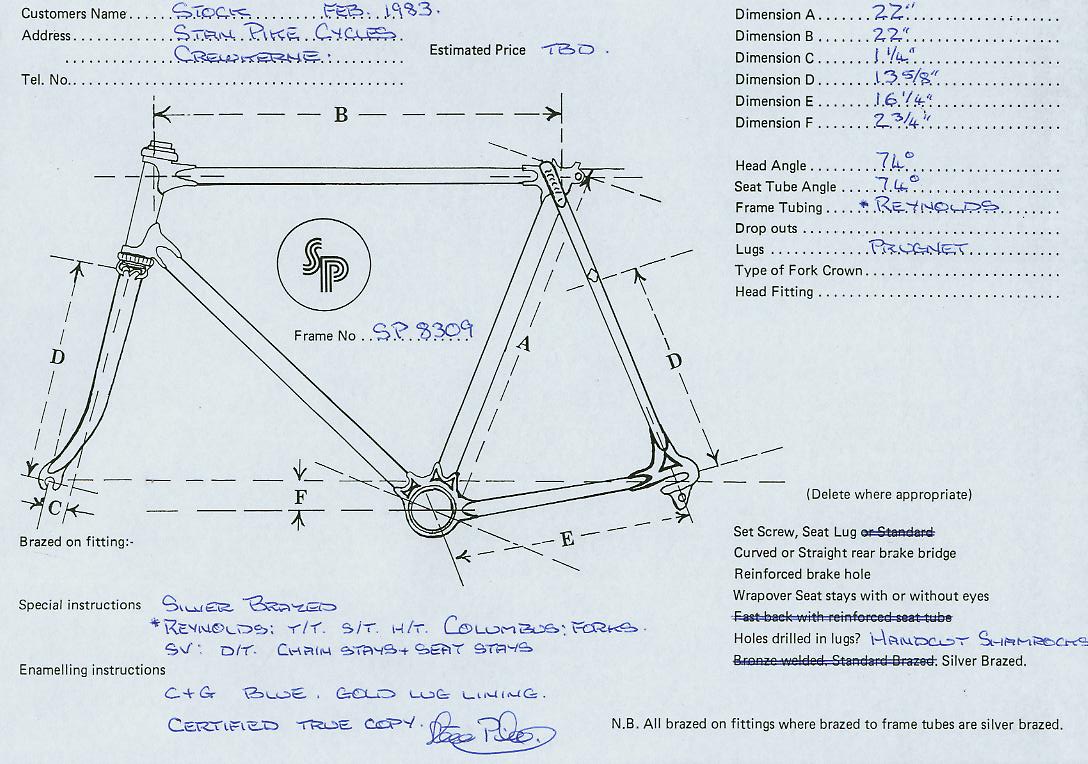 Customers Name . . . STOCK FEB. 1983.
Address . . . STAN PIKE CYCLES
CREWKERNE:
Estimated Price TBD.
Tel. No. . . .
Dimension A . . . 22"
Dimension B . . . 22"
Dimension C . . . 1 1/4"
Dimension D . . . 13 5/8"
Dimension E . . . 16 1/4"
Dimension F . . . 2 3/4"
Head Angle . . . 74°
Seat Tube Angle . . . 74°
Frame Tubing . . . * REYNOLDS
Drop outs . . .
Lugs . . . PRUGNET.
Type of Fork Crown . . .
Head Fitting . . .
B
SP
Frame No . . . S.P. 8309
A
D
D
C
F
E
Brazed on fitting:-
Special instructions SILVER BRAZED
*REYNOLDS: T/T. S/T. H/T. COLUMBUS: FORKS.
SV: D/T. CHAIN STAYS + SEAT STAYS
Enamelling instructions
C+G BLUE. GOLD LUG LINING.
CERTIFIED TRUE COPY.
(Delete where appropriate)
Set Screw, Seat Lug or Standard
Curved or Straight rear brake bridge
Reinforced brake hole
Wrapover Seat stays with or without eyes
Fast back with reinforced seat tube
Holes drilled in lugs? HANDCUT SHAMROCKS
Bronze welded. Standard Brazed. Silver Brazed.
N.B. All brazed on fittings where brazed to frame tubes are silver brazed.